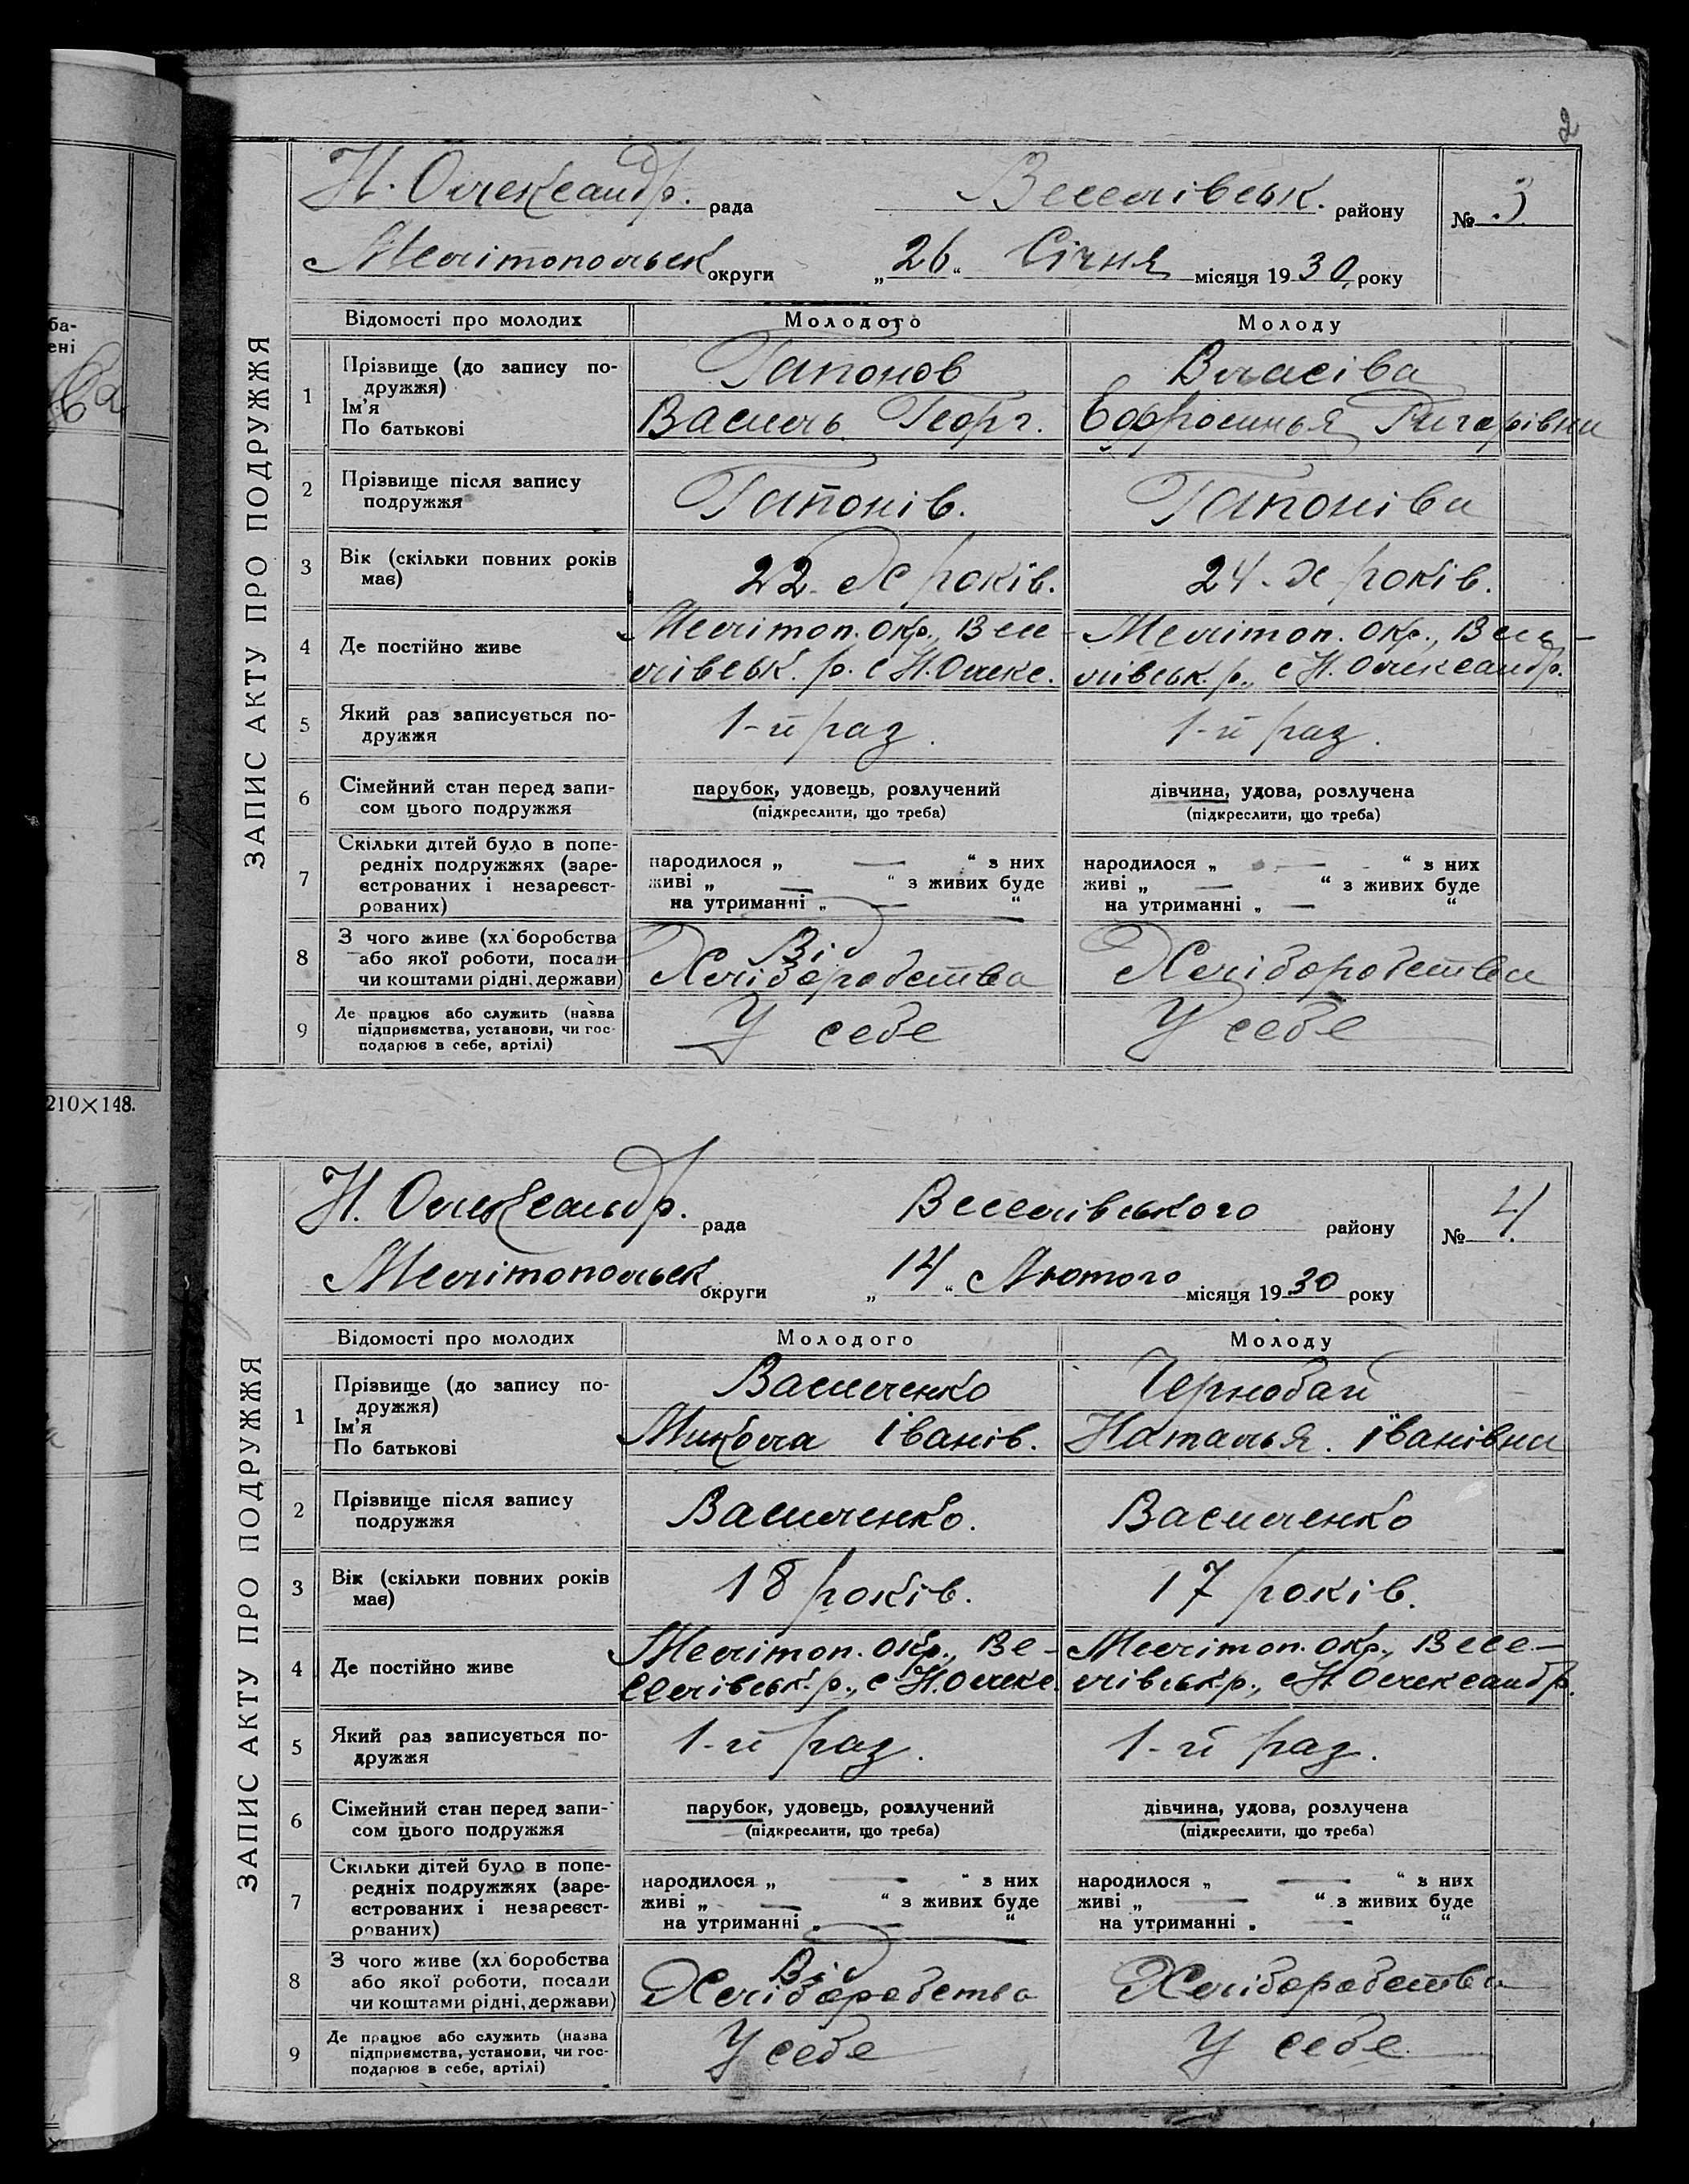 2
ба-
ені
210×148.
ЗАПИС АКТУ ПРО ПОДРУЖЖЯ
Н. Олександр. рада Веселівськ. району № 3.
Мелітопольськ округи „26“ Січня місяця 1930 року
Відомості про молодих Молодого Молоду
1 Прізвище (до запису по-
дружжя) Гапонов Власіва
Ім'я
По батькові Василь Георг. Єофросинья Григорівни
2 Прізвище після запису
подружжя Гапонів. Гапоніва
3 Вік (скільки повних років
має) 22-є років. 24-є років.
4 Де постійно живе Мелітоп. окр., Весе- Мелітоп. окр., Весе-
лівськ. р. с Н. Олекс. лівськ. р., с Н. Олександр.
5 Який раз записується по-
дружжя 1-й раз. 1-й раз.
6 Сімейний стан перед запи-
сом цього подружжя парубок, удовець, розлучений дівчина, удова, розлучена
(підкреслити, що треба) (підкреслити, що треба)
7 Скільки дітей було в попе-
редніх подружжях (заре-
єстрованих і незареєст-
рованих) народилося „ — “ з них народилося „ — “ з них
живі „ — “ з живих буде живі „ — “ з живих буде
на утриманні „ — “ на утриманні „ — “
8 З чого живе (хліборобства
або якої роботи, посади
чи коштами рідні, держави) Від Хліборобства Хліборобства
9 Де працює або служить (назва
підприємства, установи, чи гос-
подарює в себе, артілі) У себе У себе
ЗАПИС АКТУ ПРО ПОДРУЖЖЯ
Н. Олександр. рада Веселівського району № 4.
Мелітопольськ округи „14“ Лютого місяця 1930 року
Відомості про молодих Молодого Молоду
1 Прізвище (до запису по-
дружжя) Василенко Чернобай
Ім'я
По батькові Микола Іванів. Наталья. Іванівни
2 Прізвище після запису
подружжя Василенко. Василенко
3 Вік (скільки повних років
має) 18 років. 17 років.
4 Де постійно живе Мелітоп. окр., Ве- Мелітоп. окр., Весе-
селівськ. р., с Н. Олекс. лівськ р., с Н Олександр.
5 Який раз записується по-
дружжя 1-й раз. 1-й раз.
6 Сімейний стан перед запи-
сом цього подружжя парубок, удовець, розлучений дівчина, удова, розлучена
(підкреслити, що треба) (підкреслити, що треба)
7 Скільки дітей було в попе-
редніх подружжях (заре-
єстрованих і незареєст-
рованих) народилося „ — “ з них народилося „ — “ з них
живі „ — “ з живих буде живі „ — “ з живих буде
на утриманні „ — “ на утриманні „ — “
8 З чого живе (хліборобства
або якої роботи, посади
чи коштами рідні, держави) Від Хліборобства Хліборобства
9 Де працює або служить (назва
підприємства, установи, чи гос-
подарює в себе, артілі) У себе У себе